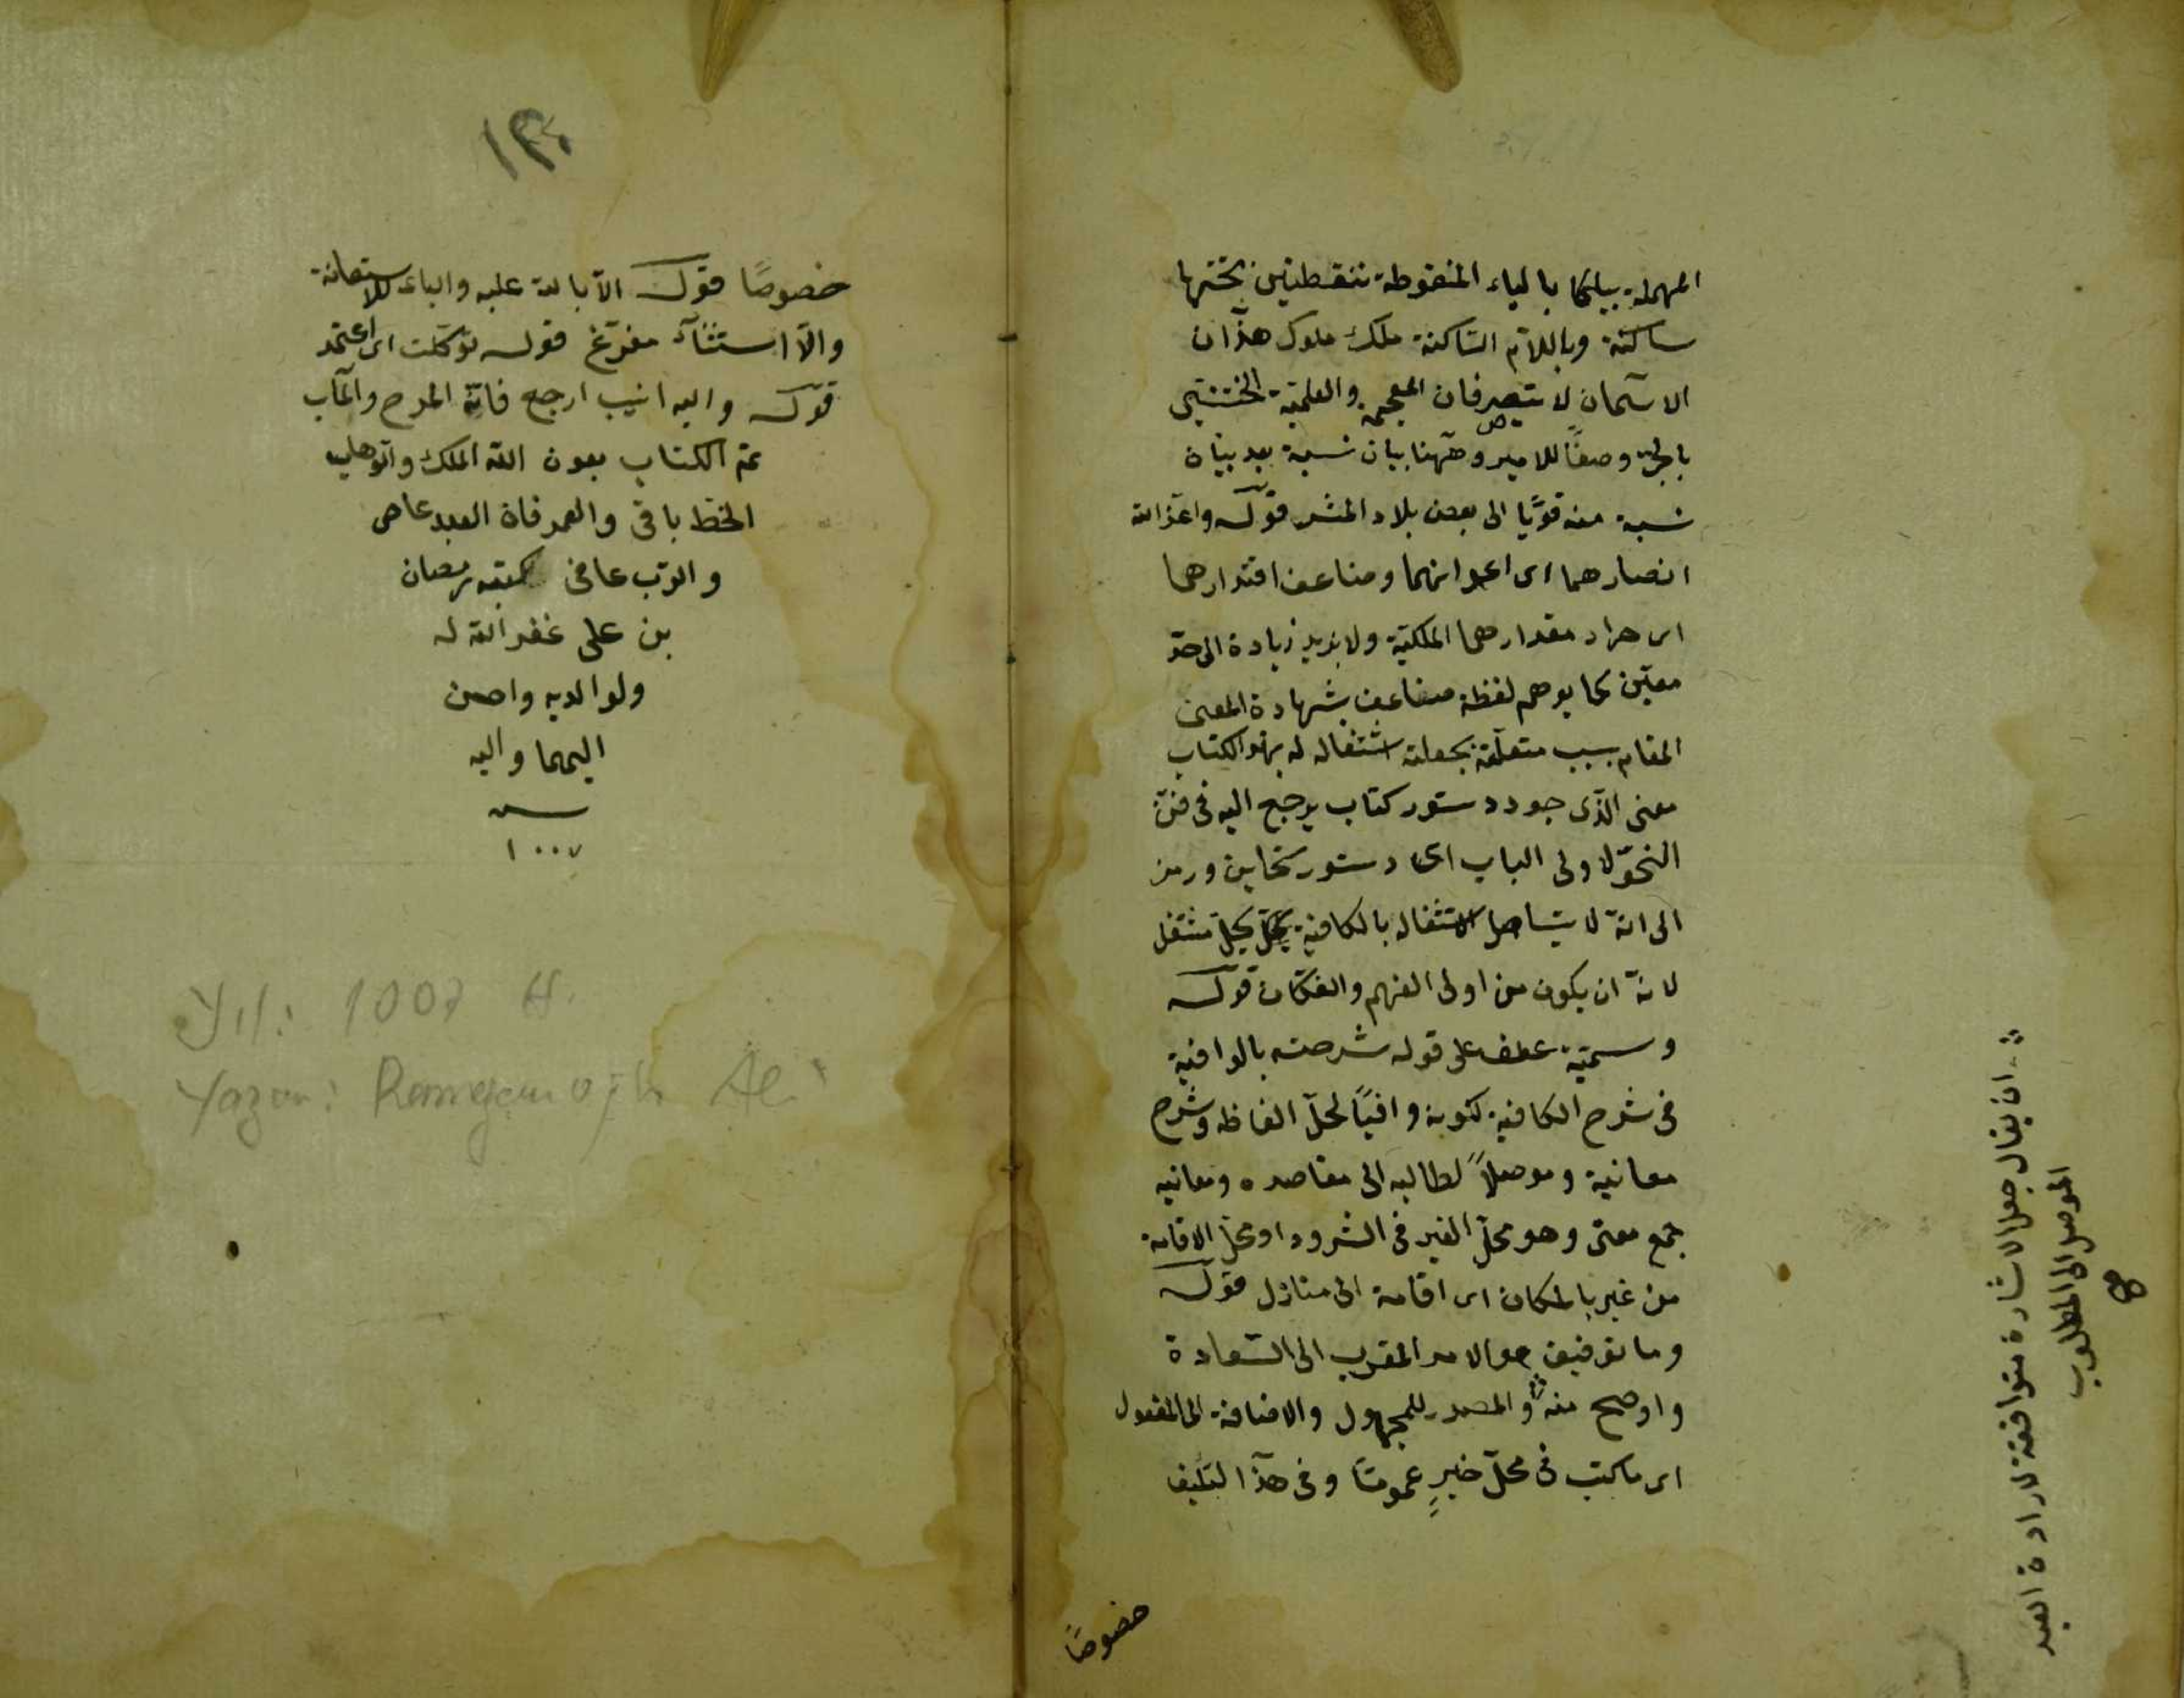 المهملة بيلكا بالياء المنقوطة بنقطتين تحتها
ساكنة وباللام الساكنة ملك ملوك هذان
الاسمان لا يتصرفان العجمة والعلمية
بالجر وصفا للامير وههنا بيان نسبة بعد بيان
نسبة الى بعض بلاد قوله واعز الله
انصارهما اى اعوانهما وضاعف اقتدارهما
اى مقدارهما الملكية ولا يريد زيادة الى حد
معين كما يوهم لفظة ضاعف بشهادة
المقام بسبب متعلقة اشتغاله له بهذا الكتاب
معنى الذى دستور كتاب يرجع اليه فى فن
النحو لاولى الباب اى دستور ورمز
الى انه لا اشتغاله بالكافية مشتغل
لانه ان يكون من اولى الفهم قوله
وسميته عطف على قوله شرحته بالوافية
فى شرح الكافية لكونه وافيا لحل الفاظه وشرح
معانيه وموصلا لطالبه الى مقاصده ومعانيه
جمع معنى وهو محل فى او محل الاقامة
من بالمكان اى اقامة الى منازل قوله
وما توفيقى هو الامر المقرب الى السعادة
واوضح منه والمصدر للمجهول والاضافة الى المفعول
اى ما كتب فى محل خير عموما وفى هذا التليف
خصوصا
ان يقال جعل الاشارة متوافقة لارادة العبد
الموصل الى المطلوب
صح
١٣٠
خصوصا قوله الا بالله عليه والباء للاستعانة
والا استثناء مفرغ قوله توكلت اى اعتمد
قوله واليه انيب ارجع فانه المرجع والمآب
تم الكتاب بعون الله الملك الوهاب
الخط باقى والعمر فان العبد عاصى
والرب عافى كتبه رمضان
بن على غفر الله له
ولوالديه واحسن
اليهما واليه
سنه
١٠٠٧
Yıl: 1007 H.
Yazan: Ramazan oğlu Ali